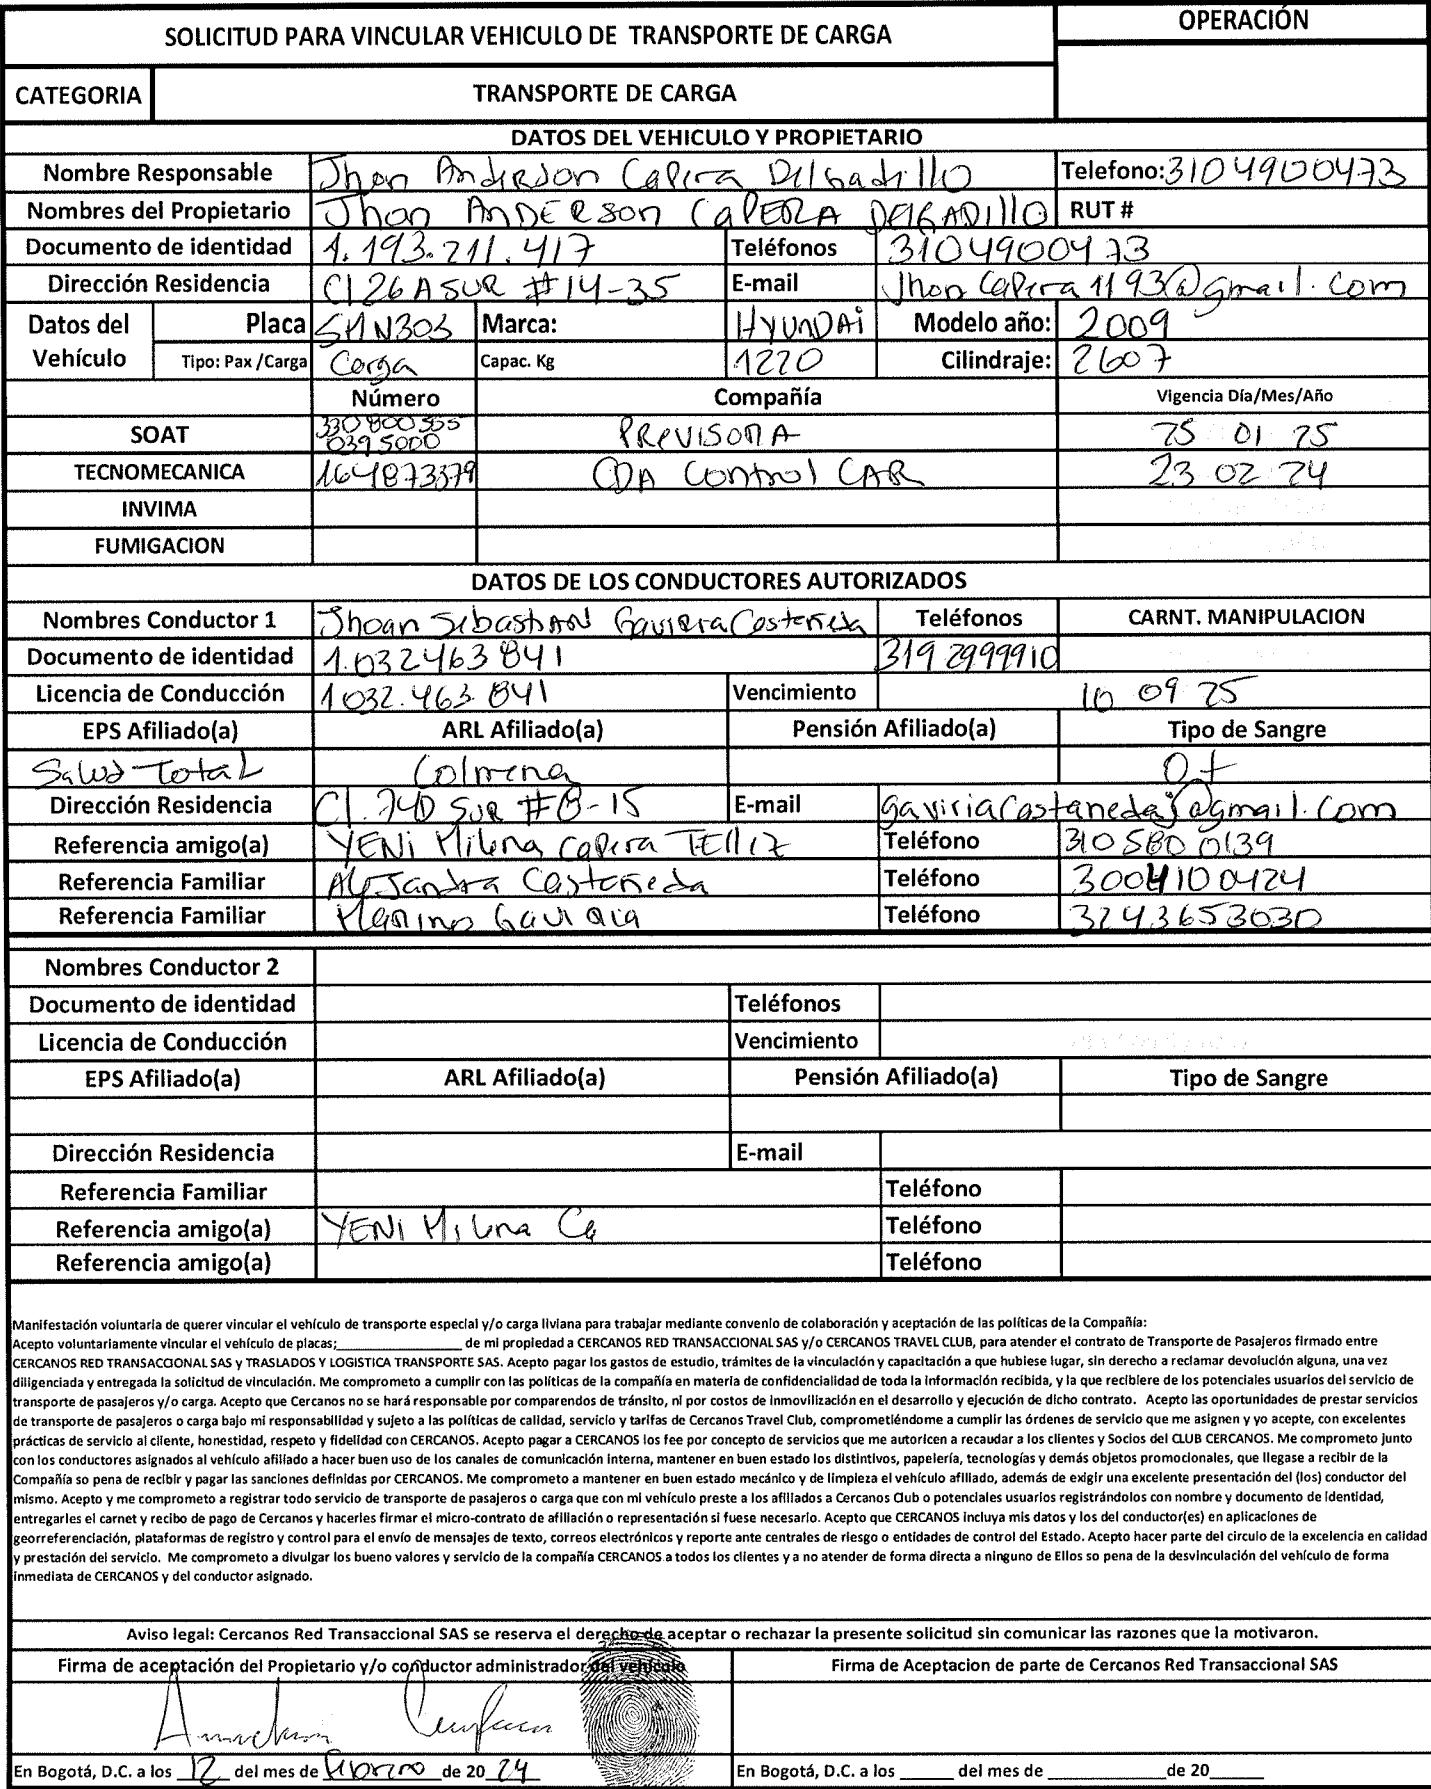 SOLICITUD PARA VINCULAR VEHICULO DE TRANSPORTE DE CARGA
OPERACIÓN
CATEGORIA
TRANSPORTE DE CARGA
DATOS DEL VEHICULO Y PROPIETARIO
Nombre Responsable Jhon Anderson Capera Delgadillo Telefono: 3104900473
Nombres del Propietario Jhon ANDERSON CAPERA DELGADILLO RUT #
Documento de identidad 1.193.211.417 Teléfonos 3104900473
Dirección Residencia Cl 26 A SUR # 14-35 E-mail Jhon Capera 1193@gmail.com
Datos del Vehículo Placa SMN303 Marca: HYUNDAi Modelo año: 2009
Tipo: Pax /Carga Carga Capac. Kg 1220 Cilindraje: 2607
Número Compañía Vigencia Día/Mes/Año
SOAT 330800555 0395000 PREVISORA 25 01 25
TECNOMECANICA 164873379 CDA Control CAR 23 02 24
INVIMA
FUMIGACION
DATOS DE LOS CONDUCTORES AUTORIZADOS
Nombres Conductor 1 Jhoan Sebastian Gaviria Castañeda Teléfonos CARNT. MANIPULACION
Documento de identidad 1.032463841 3192999910
Licencia de Conducción 1032.463.841 Vencimiento 10 09 25
EPS Afiliado(a) ARL Afiliado(a) Pensión Afiliado(a) Tipo de Sangre
Salud Total Colmena O+
Dirección Residencia Cl. 74D SUR #8-15 E-mail gaviriacastanedaj@gmail.com
Referencia amigo(a) YENi Milena Capera TElliz Teléfono 3105800139
Referencia Familiar Alejandra Castañeda Teléfono 3004100424
Referencia Familiar Marino Gaviria Teléfono 3243653030
Nombres Conductor 2
Documento de identidad Teléfonos
Licencia de Conducción Vencimiento
EPS Afiliado(a) ARL Afiliado(a) Pensión Afiliado(a) Tipo de Sangre
Dirección Residencia E-mail
Referencia Familiar Teléfono
Referencia amigo(a) YENi Milena Ca Teléfono
Referencia amigo(a) Teléfono
Manifestación voluntaria de querer vincular el vehículo de transporte especial y/o carga liviana para trabajar mediante convenio de colaboración y aceptación de las políticas de la Compañía:
Acepto voluntariamente vincular el vehículo de placas;____________________ de mi propiedad a CERCANOS RED TRANSACCIONAL SAS y/o CERCANOS TRAVEL CLUB, para atender el contrato de Transporte de Pasajeros firmado entre
CERCANOS RED TRANSACCIONAL SAS y TRASLADOS Y LOGISTICA TRANSPORTE SAS. Acepto pagar los gastos de estudio, trámites de la vinculación y capacitación a que hubiese lugar, sin derecho a reclamar devolución alguna, una vez
diligenciada y entregada la solicitud de vinculación. Me comprometo a cumplir con las políticas de la compañía en materia de confidencialidad de toda la información recibida, y la que recibiere de los potenciales usuarios del servicio de
transporte de pasajeros y/o carga. Acepto que Cercanos no se hará responsable por comparendos de tránsito, ni por costos de inmovilización en el desarrollo y ejecución de dicho contrato. Acepto las oportunidades de prestar servicios
de transporte de pasajeros o carga bajo mi responsabilidad y sujeto a las políticas de calidad, servicio y tarifas de Cercanos Travel Club, comprometiéndome a cumplir las órdenes de servicio que me asignen y yo acepte, con excelentes
prácticas de servicio al cliente, honestidad, respeto y fidelidad con CERCANOS. Acepto pagar a CERCANOS los fee por concepto de servicios que me autoricen a recaudar a los clientes y Socios del CLUB CERCANOS. Me comprometo junto
con los conductores asignados al vehículo afiliado a hacer buen uso de los canales de comunicación interna, mantener en buen estado los distintivos, papelería, tecnologías y demás objetos promocionales, que llegase a recibir de la
Compañía so pena de recibir y pagar las sanciones definidas por CERCANOS. Me comprometo a mantener en buen estado mecánico y de limpieza el vehículo afiliado, además de exigir una excelente presentación del (los) conductor del
mismo. Acepto y me comprometo a registrar todo servicio de transporte de pasajeros o carga que con mi vehículo preste a los afiliados a Cercanos Club o potenciales usuarios registrándolos con nombre y documento de identidad,
entregarles el carnet y recibo de pago de Cercanos y hacerles firmar el micro-contrato de afiliación o representación si fuese necesario. Acepto que CERCANOS incluya mis datos y los del conductor(es) en aplicaciones de
georreferenciación, plataformas de registro y control para el envío de mensajes de texto, correos electrónicos y reporte ante centrales de riesgo o entidades de control del Estado. Acepto hacer parte del circulo de la excelencia en calidad
y prestación del servicio. Me comprometo a divulgar los bueno valores y servicio de la compañía CERCANOS a todos los clientes y a no atender de forma directa a ninguno de Ellos so pena de la desvinculación del vehículo de forma
inmediata de CERCANOS y del conductor asignado.
Aviso legal: Cercanos Red Transaccional SAS se reserva el derecho de aceptar o rechazar la presente solicitud sin comunicar las razones que la motivaron.
Firma de aceptación del Propietario y/o conductor administrador del vehiculo Firma de Aceptacion de parte de Cercanos Red Transaccional SAS
En Bogotá, D.C. a los 12 del mes de febrero de 20 24 En Bogotá, D.C. a los ______ del mes de ____________ de 20______